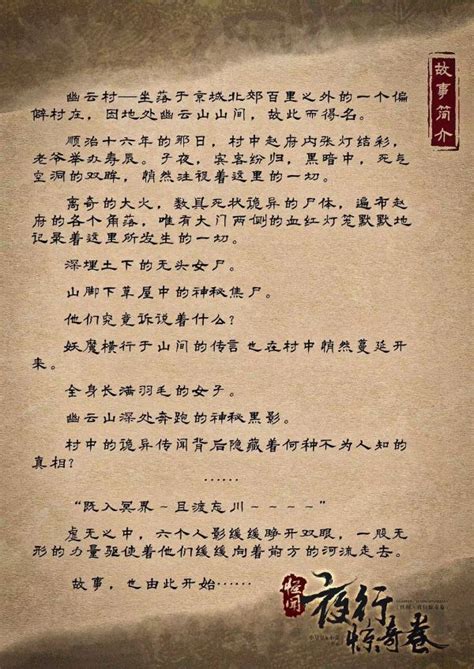 故事简介
幽云村—坐落于京城北郊百里之外的一个偏
僻村庄，因地处幽云山山间，故此而得名。
顺治十六年的那日，村中赵府内张灯结彩，
老爷举办寿辰。子夜，宾客纷归，黑暗中，死气
空洞的双眸，悄然注视着这里的一切。
离奇的大火，数具死状诡异的尸体，遍布赵
府的各个角落，唯有大门两侧的血红灯笼默默地
记录着这里所发生的一切。
深埋土下的无头女尸。
山脚下草屋中的神秘焦尸。
他们究竟诉说着什么？
妖魔横行于山间的传言也在村中悄然蔓延开
来。
全身长满羽毛的女子。
幽云山深处奔跑的神秘黑影。
村中的诡异传闻背后隐藏着何种不为人知的
真相？
······
“既入冥界~且渡忘川~~~~”
虚无之中，六个人影缓缓睁开双眼，一股无
形的力量驱使着他们缓缓向着前方的河流走去。
故事，也由此开始······
怪闻
夜行
惊奇卷